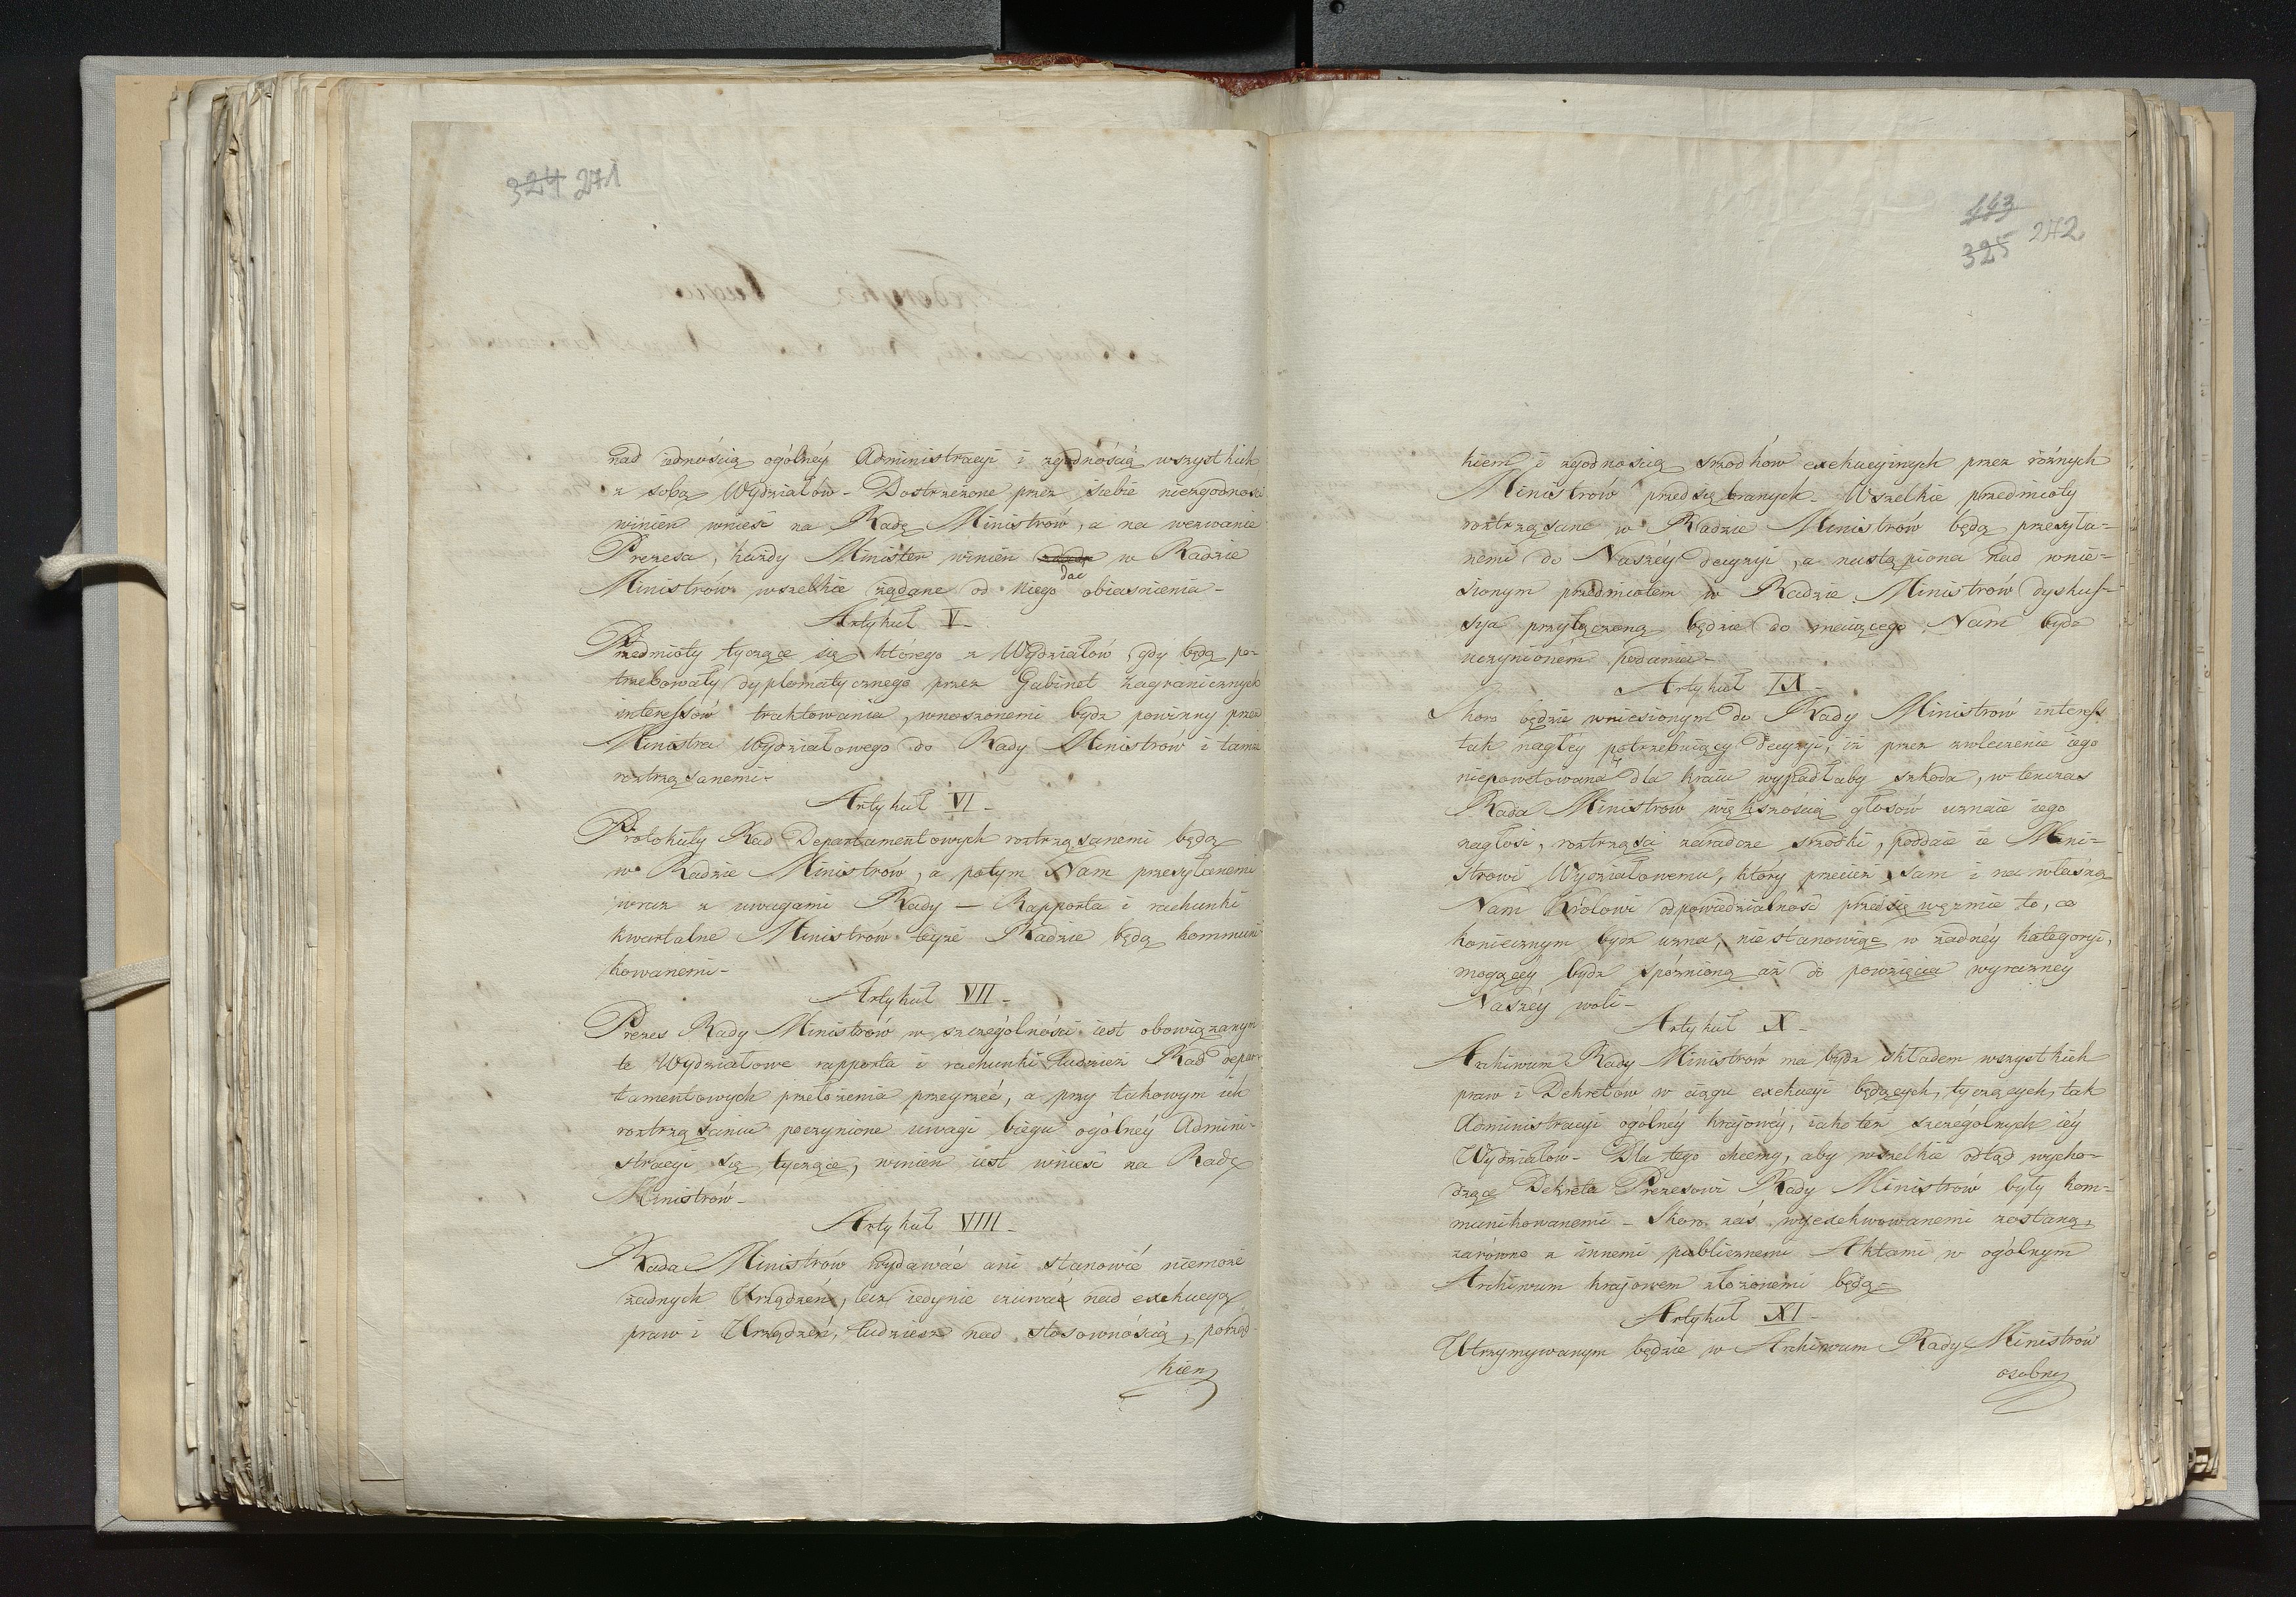 324 271
nad iednością ogólney Administracyi i zgodnością wszystkich
z sobą Wydziałów - Dostrzeżone przez siebie niezgodności
winien wnieść na Radę Ministrów, a na wezwanie
Prezesa, każdy Minister winien w Radzie
dać
Ministrów wszelkie żądane od niego obiaśnienia -
Artykuł V -
Przedmioty tyczące się którego z Wydziałów gdy będą po-
trzebowały dyplomatycznego przez Gabinet Zagranicznych
interessów traktowania, wnoszonemi bydź powinny przez
Ministra Wydziałowego do Rady Ministrów i tamże
roztrząsanemi -
Artykuł VI -
Protokuły Rad Departamentowych roztrząsanemi będą
w Radzie Ministrów, a potym Nam przesyłanemi
wraz z uwagami Rady - Rapporta i rachunki
kwartalne Ministrów teyże Radzie będą kommuni
kowanemi -
Artykuł VII -
Prezes Rady Ministrów w szczególności iest obowiązanym
te Wydziałowe rapporta i rachunki tudzież Rad depar-
tamentowych przełożenia przeyrzeć, a przy takowym ich
roztrząsaniu poczynione uwagi biegu ogólney Admini-
stracyi się tyczące, winien iest wnieść na Radę
Ministrów -
Artykuł VIII -
Rada Ministrów wydawać ani stanowić niemoże
żadnych Urządzeń, lecz iedynie czuwać nad exekucyą
praw i Urządzeń, tudziesz nad stosownością, porząd-
kiem
143
325 272
kiem i zgodnością srzodków exekucyinych przez różnych
Ministrów przedsiębranych - Wszelkie przedmioty
roztrząsane w Radzie Ministrów będą przesyła-
nemi do Naszéy decyzyi, a nastąpiona nad wnie-
sionym przedmiotem w Radzie Ministrów dyskus-
sya przyłączoną będzie do maiącego Nam bydź
uczynionem podania -
Artykuł IX -
Skoro będzie wniesionym do Rady Ministrów interess
tak nagłéy potrzebuiący decyzyi, iż przez zwleczenie iego
niepowetowana dla kraiu wypadłaby szkoda, w tenczas
Rada Ministrów większością głosów uznaie iego
nagłość, roztrząsa zaradcze srzodki, poddaie ie Mini-
strowi Wydziałowemu, który przecież sam i na własną
Nam Królowi odpowiedzialność przedsięweźmie to, co
koniecznym bydź uzna, nie stanowiąc w żadnéy kategoryi,
mogącéy bydź spóźnioną aż do powzięcia wyraźnéy
Naszéy woli -
Artykuł X -
Archiwum Rady Ministrów ma bydź składem wszystkich
praw i Dekretów w ciągu exekucyi będących, tyczących, tak
Administracyi ogólney krajowéy, iako też szczególnych iéy
Wydziałów - Dla tego chcemy, aby wszelkie odtąd wycho-
dzące Dekreta Prezesowi Rady Ministrów były kom-
munikowanemi - Skoro zaś wyexekwowanemi zostaną,
zarówno z innemi publicznemi Aktami w ogólnym
Archiwum krajowem złożonemi będą -
Artykuł XI -
Utrzymywanym będzie w Archiwum Rady Ministrów
osobny